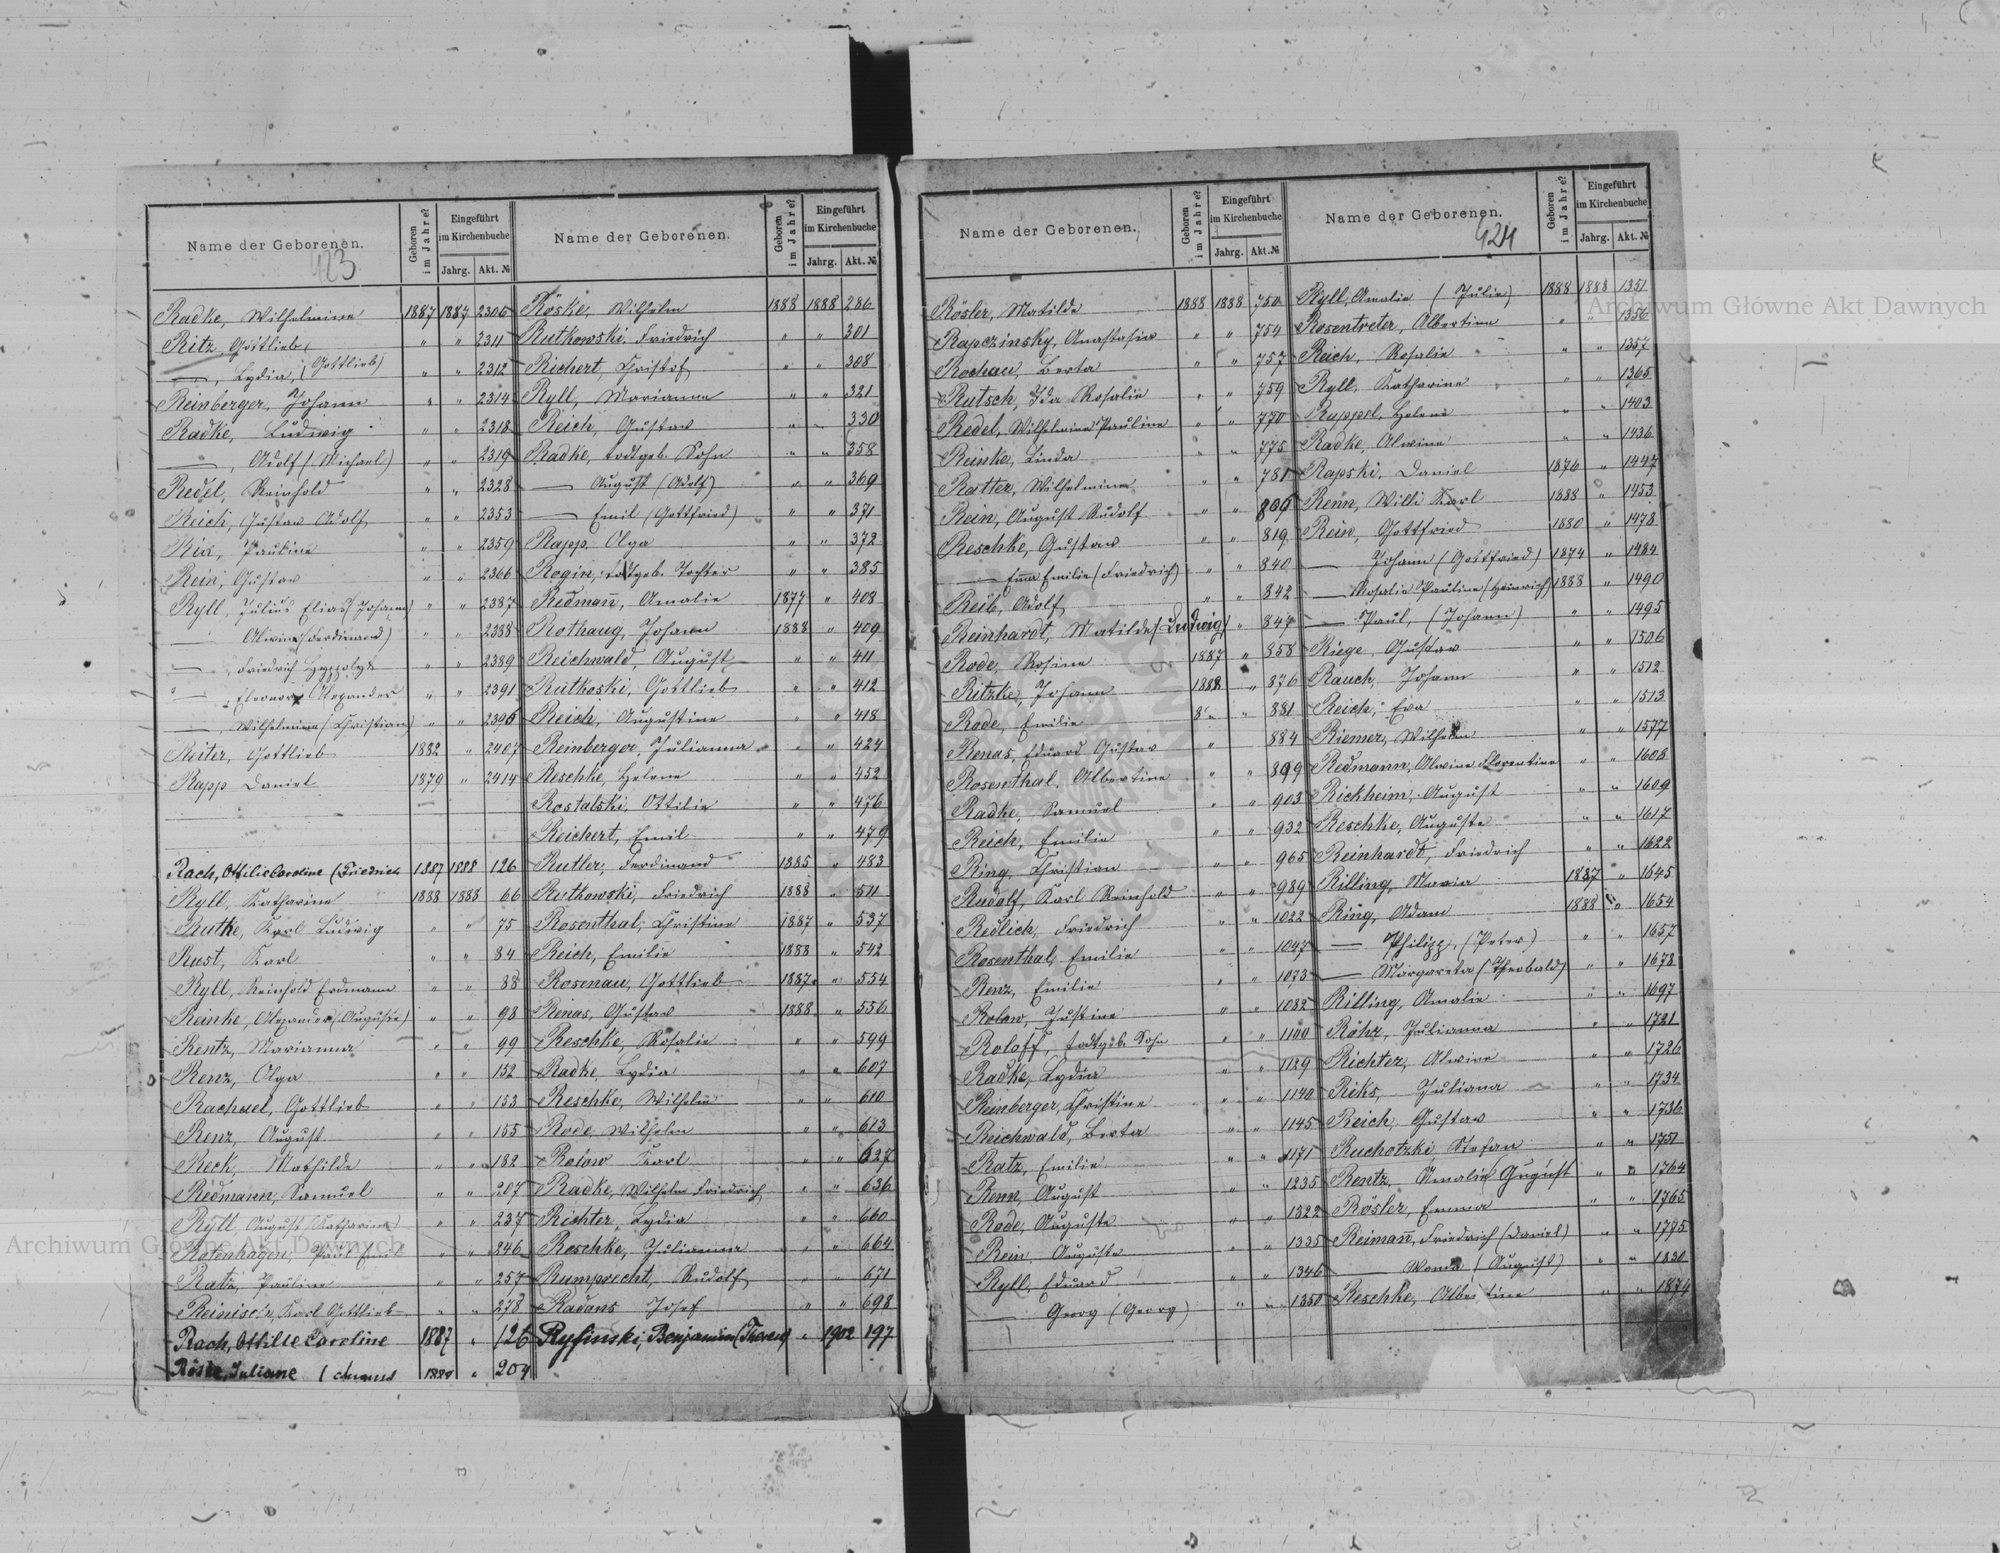 Name der Geborenen. Geboren im Jahre? Eingeführt im Kirchenbuche Jahrg. Akt. №
423
Radke, Wilhelmine 1887 1887 2306
Ritz, Gottlieb " " 2311
—, Lydia, (Gottlieb) " " 2312
Reinberger, Johann " " 2314
Radke, Ludwig " " 2318
—, Adolf (Michael) " " 2319
Redel, Reinhold " " 2328
Reich, Gustav Adolf " " 2353
Pauline " " 2359
Rein, Gustav " " 2366
Ryll, Julius Elias (Johann) " " 2387
— Alwine (Ferdinand) " " 2388
— Friedrich " " 2389
— Alexander " " 2391
—, Wilhelmine (Christian) " " 2396
Reiter, Gottlieb 1882 " 2407
Rapp Daniel 1879 " 2414
Rach, Ottilie Caroline (Friedrich 1887 1888 126
Ryll, Katharine 1888 1888 66
Rutke, Karl Ludwig " " 75
Rust, Karl " " 84
Ryll, Reinhold Erdmann " " 88
Reinke, Alexander (Auguste) " " 98
Rentz, Marianna " " 99
Renz, Olga " " 152
Rachuel, Gottlieb " " 153
Renz, August " " 155
Reck, Mathilde " " 182
Redmann, Samuel " " 207
Ryll August (Katharina) " " 237
Rotenhagen, Paul Emil " " 246
Ratz, Pauline " " 257
Reinisch, Karl Gottlieb " " 278
Rach, Ottilie Caroline 1887 " 126
Juliane " 204
Name der Geborenen. Geboren im Jahre? Eingeführt im Kirchenbuche Jahrg. Akt. №
Röske, Wilhelm 1888 1888 286
Rutkowski, Friedrich " " 301
Richert, Cristof " " 308
Ryll, Marianne " " 321
Reich, Gustav " " 330
Radke, todtgeb. Sohn " " 358
— August (Adolf) " " 369
— Emil (Gottfried) " " 371
Rapp Olga " " 372
Rogin, todtgeb. Tochter " " 385
Redmann, Amalie 1877 " 408
Rothaug, Johann 1888 " 409
Reichwald, August " " 411
Rutkoski, Gottlieb " " 412
Reich, Augustine " " 418
Reinberger, Julianna " " 424
Reschke, Helene " " 452
Rostalski, Ottilie " " 476
Reichert, Emil " " 479
Rutler, Ferdinand 1885 " 483
Rutkowski, Friedrich 1888 " 511
Rosenthal, Christine 1887 " 537
Reich, Emilie 1888 " 542
Rosenau, Gottlieb 1887 " 554
Renas, Gustav 1888 " 556
Reschke, Rosalie " " 599
Radke, Lydia " " 607
Reschke, Wilhelm " " 610
Rode, Wilhelm " " 613
Rolow Karl " " 627
Radke, Wilhelm Friedrich " " 636
Richter, Lydia " " 660
Reschke, Julianna " " 664
Rumprecht, Rudolf " " 671
Radans Josef " " 698
Ryfinski, Benjamin (Therese) " 1902 197
Name der Geborenen. Geboren im Jahre? Eingeführt im Kirchenbuche Jahrg. Akt. №
Rösler, Matilde 1888 1888 750
Rapczinsky, Anastasia " " 754
Rochau, Berta " " 757
Rutsch, Ida Rosalie " " 759
Redel, Wilhelmine Pauline " " 770
Reinke, Linda " " 775
Ratter, Wilhelmine " " 781
Rein, August Rudolf " " 809
Reschke, Gustav " " 819
— Emma Emilie (Friedrich) " " 840
Reib, Adolf " " 842
Reinhardt, Matilde (Ludwig) " 847
Rode, Rosine 1887 " 858
Ritzke, Johann 1888 " 876
Rode, Emilie " " 881
Renas, Eduard Gustav " 884
Rosenthal, Albertine " " 899
Radke, Samuel " " 903
Reich, Emilie " " 932
Ring, Christian " " 965
Rudolf, Karl Reinhold " " 989
Redlich, Friedrich " " 1022
Rosenthal, Emilie " " 1047
Renz, Emilie " " 1073
Rolow, Justine " " 1082
Roloff, todtgeb. Sohn " " 1100
Radke, Lydia " " 1129
Reinberger, Christine " " 1140
Reichwald, Berta " " 1145
Ratz, Emilie " " 1171
Renn, August " " 1235
Rode, Auguste " " 1322
Rein Auguste " " 1335
Ryll, Eduard " " 1346
— Georg (Georg) " " 1350
Name der Geborenen. Geboren im Jahre? Eingeführt im Kirchenbuche Jahrg. Akt. №
424
Ryll, Amalie (Julie) 1888 1888 1351
Rosentreter, Albertine " " 1356
Reich, Rosalie " " 1357
Ryll, Katharine " " 1365
Ruppel, Helene " " 1403
Radke, Alwine " " 1436
Rapski, Daniel 1876 " 1447
Renn, Willi Karl 1888 " 1453
Rein, Gottfried 1880 " 1478
— Johann (Gottfried) 1874 " 1484
— Rosalie Pauline (Heinrich) 1888 " 1490
— Paul, (Johann) " " 1495
Riege, Gustav " " 1506
Rauch, Johann " " 1512
Reich, Eva " " 1513
Riemer, Wilhelm " " 1577
Redmann, Alwine Florentine " " 1608
Richheim, August " " 1609
Reschke, Auguste " " 1617
Reinhardt, Friedrich " " 1622
Rilling, Maria 1887 " 1645
Ring, Adam 1888 " 1654
— Philipp, (Peter) " " 1657
— Margareta (Theobald) " " 1678
Rilling, Amalie " " 1697
Röhr, Julianna " " 1721
Richter, Alwine " " 1726
Riks, Juliana " " 1734
Reich, Gustav " " 1736
Ruchotzki, Stefan " " 1751
Rentz, Amalie August " " 1764
Rösler, Emma " " 1765
Reimann, Friedrich (Daniel) " " 1795
— Wanda (August) " " 1830
Reschke, Albertine " " 1874
Archiwum Główne Akt Dawnych
Archiwum Główne Akt Dawnych